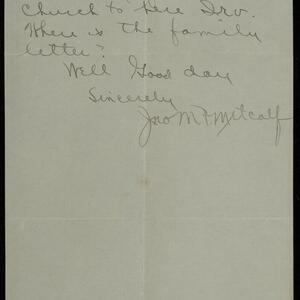 Church to here Drv.
Where is the family
letter?
Well Good day
Sincerely
Jno M Metcalf